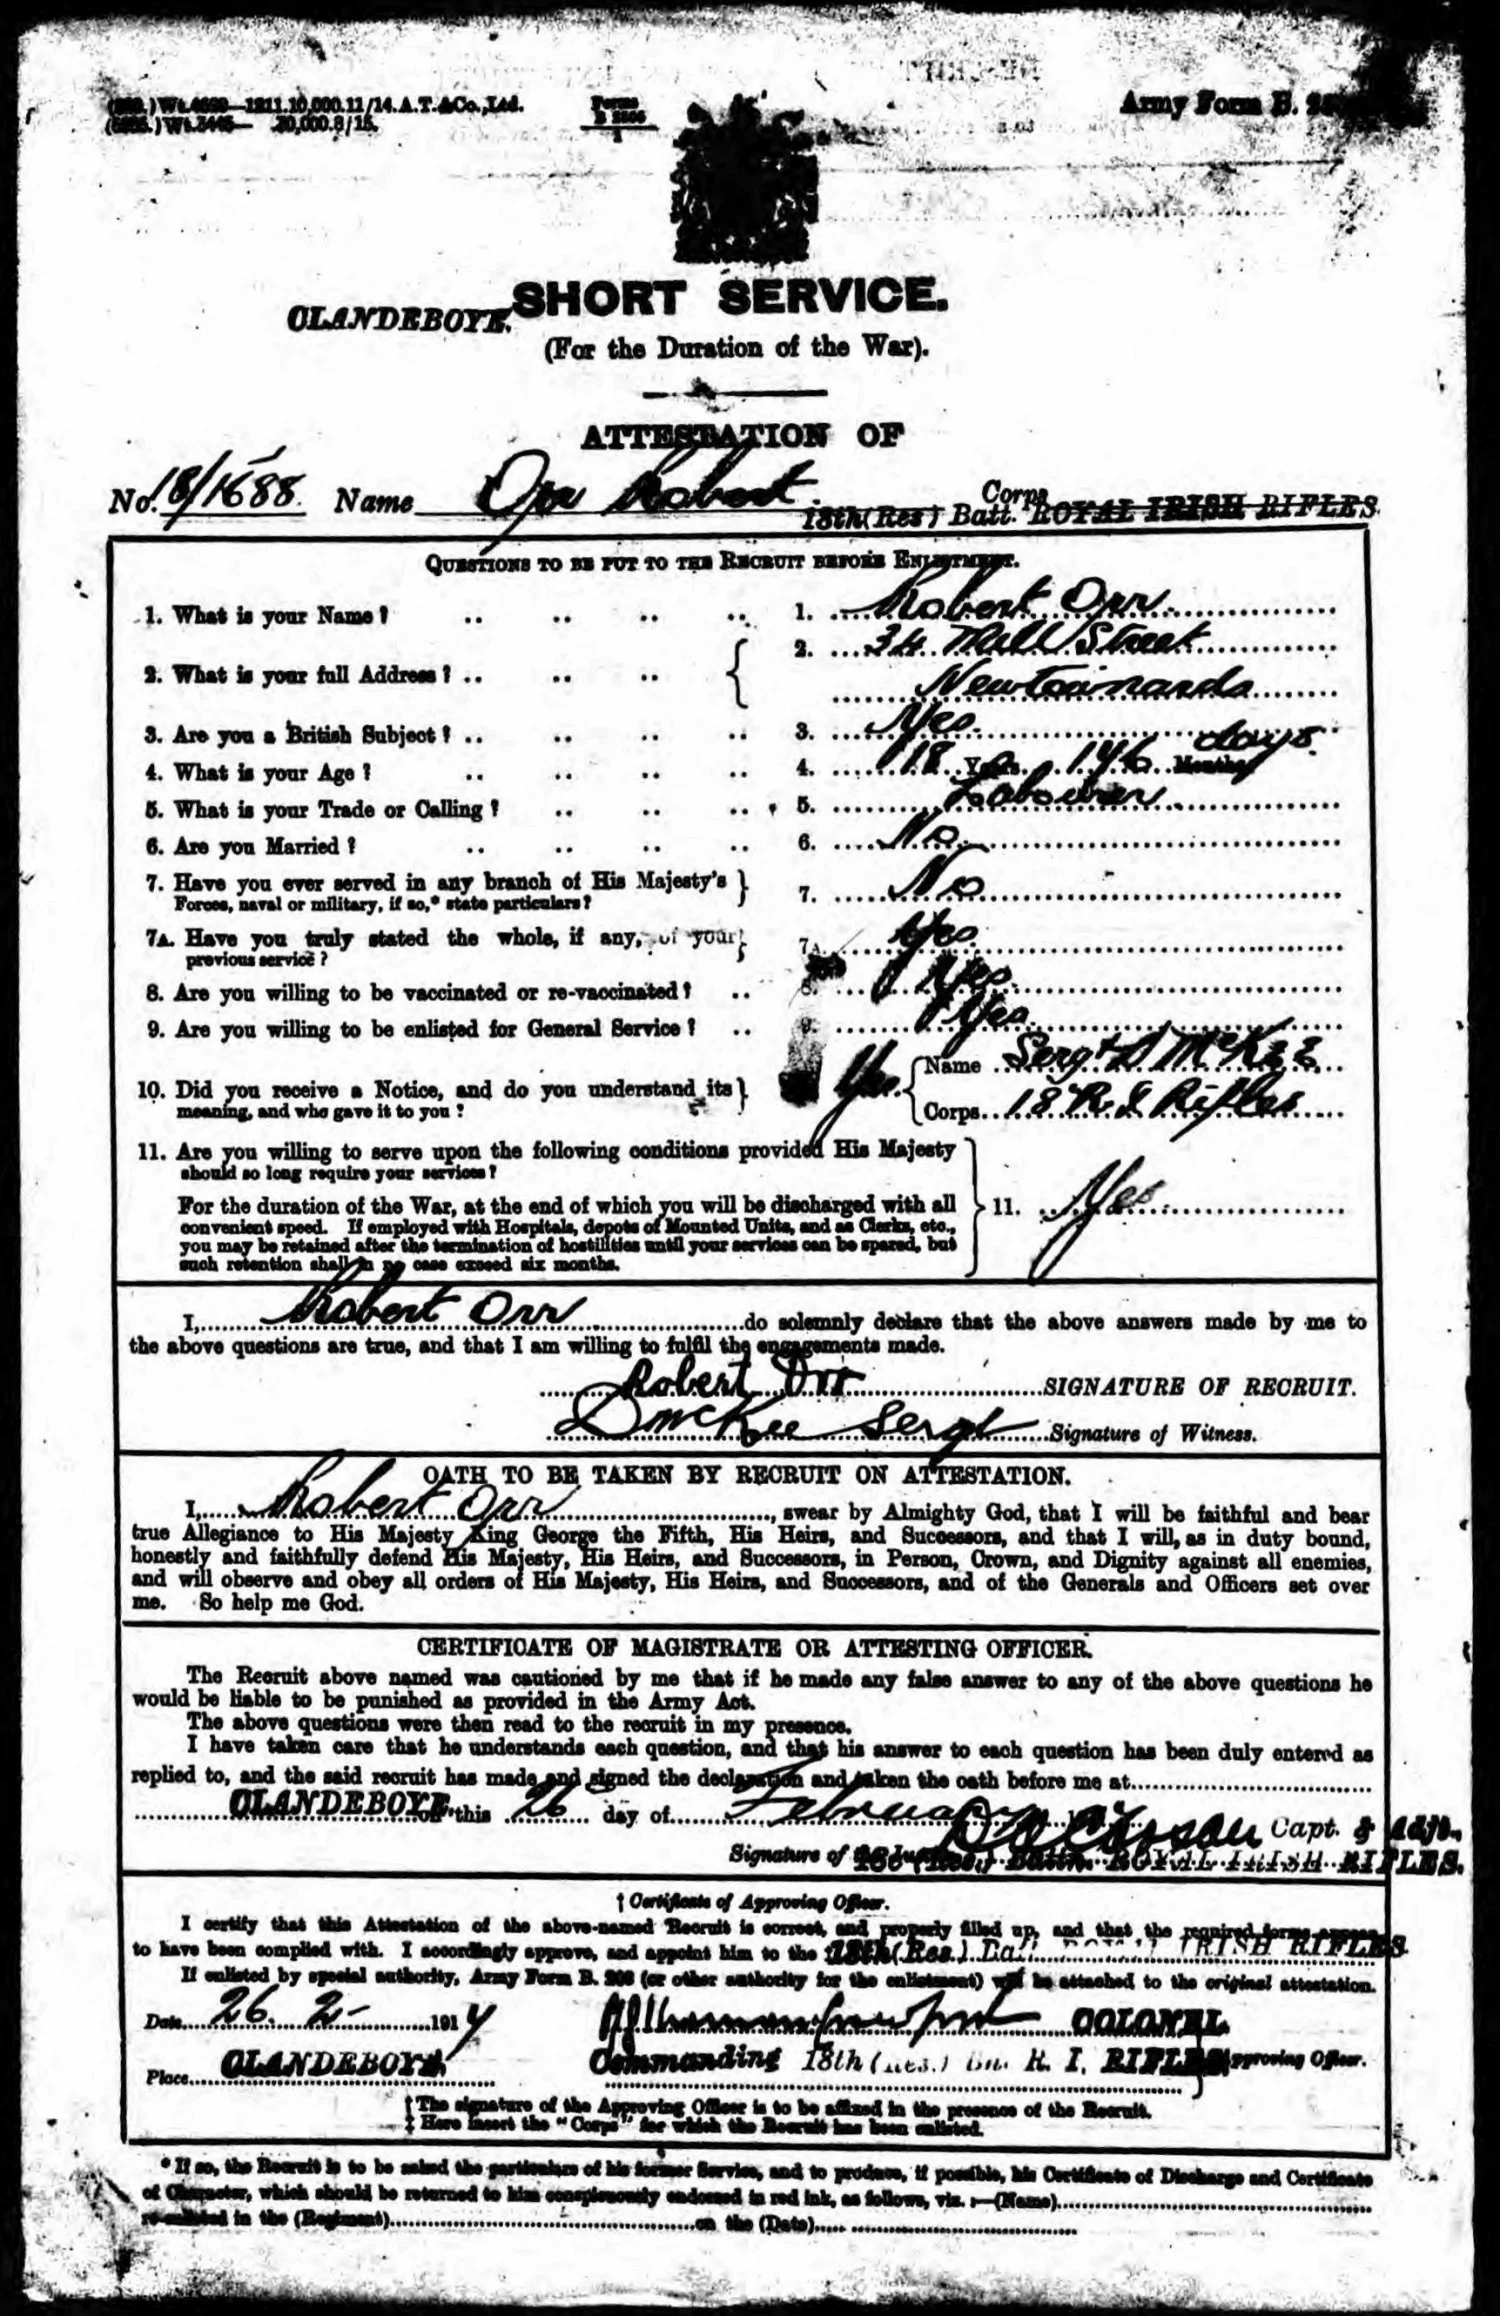 Wt. 1811.10,000.11/14.A.T.&Co.,Ltd. Forms Army Form B.
Wt.3445— 8/15. B 2505
1
SHORT SERVICE.
CLANDEBOYE.
(For the Duration of the War).
ATTESTATION OF
No. 18/ Name Orr Robert. Corps
18th (Res) Batt. ROYAL IRISH RIFLES
QUESTIONS TO BE PUT TO THE RECRUIT BEFORE ENLISTMENT.
1. What is your Name? .. .. .. .. 1. Robert Orr.
2. What is your full Address? .. .. .. 2. 34 Mill Street
Newtownards
3. Are you a British Subject? .. .. .. .. 3. Yes.
4. What is your Age? .. .. .. .. 4. 18 Years 146 Months days.
5. What is your Trade or Calling? .. .. .. 5. Labourer
6. Are you Married? .. .. .. .. 6. No.
7. Have you ever served in any branch of His Majesty's
Forces, naval or military, if so,* state particulars? 7. No
7A. Have you truly stated the whole, if any, of your
previous service? 7A. Yes.
8. Are you willing to be vaccinated or re-vaccinated? .. 8. Yes.
9. Are you willing to be enlisted for General Service? .. 9. Yes.
10. Did you receive a Notice, and do you understand its
meaning, and who gave it to you? Yes. Name Sergt D McKEE
Corps 18 R I Rifles
11. Are you willing to serve upon the following conditions provided His Majesty
should so long require your services?
For the duration of the War, at the end of which you will be discharged with all
convenient speed. If employed with Hospitals, depots of Mounted Units, and as Clerks, etc.,
you may be retained after the termination of hostilities until your services can be spared, but
such retention shall in no case exceed six months. 11. Yes
I, Robert Orr do solemnly declare that the above answers made by me to
the above questions are true, and that I am willing to fulfil the engagements made.
Robert Orr SIGNATURE OF RECRUIT.
D McKee Sergt Signature of Witness.
OATH TO BE TAKEN BY RECRUIT ON ATTESTATION.
I, Robert Orr, swear by Almighty God, that I will be faithful and bear
true Allegiance to His Majesty King George the Fifth, His Heirs, and Successors, and that I will, as in duty bound,
honestly and faithfully defend His Majesty, His Heirs, and Successors, in Person, Crown, and Dignity against all enemies,
and will observe and obey all orders of His Majesty, His Heirs, and Successors, and of the Generals and Officers set over
me. So help me God.
CERTIFICATE OF MAGISTRATE OR ATTESTING OFFICER.
The Recruit above named was cautioned by me that if he made any false answer to any of the above questions he
would be liable to be punished as provided in the Army Act.
The above questions were then read to the recruit in my presence.
I have taken care that he understands each question, and that his answer to each question has been duly entered as
replied to, and the said recruit has made and signed the declaration and taken the oath before me at
CLANDEBOYE. on this 26 day of February
Capt. & Adjt.,
Signature of the 18th (Res.) Battn. ROYAL IRISH RIFLES.
† Certificate of Approving Officer.
I certify that this Attestation of the above-named Recruit is correct, and properly filled up, and that the required forms appear
to have been complied with. I accordingly approve, and appoint him to the 18th (Res.) Batt. ROYAL IRISH RIFLES
If enlisted by special authority, Army Form B. 203 (or other authority for the enlistment) will be attached to the original attestation.
Date 26. 2 - 191
COLONEL
Commanding 18th (Res.) Bn. R. I. RIFLES Approving Officer.
Place CLANDEBOYE
† The signature of the Approving Officer is to be affixed in the presence of the Recruit.
‡ Here insert the "Corps" for which the Recruit has been enlisted.
* If so, the Recruit is to be asked the particulars of his former Service, and to produce, if possible, his Certificate of Discharge and Certificate
of Character, which should be returned to him conspicuously endorsed in red ink, as follows, viz. :—(Name)
re-enlisted in the (Regiment) on the (Date)